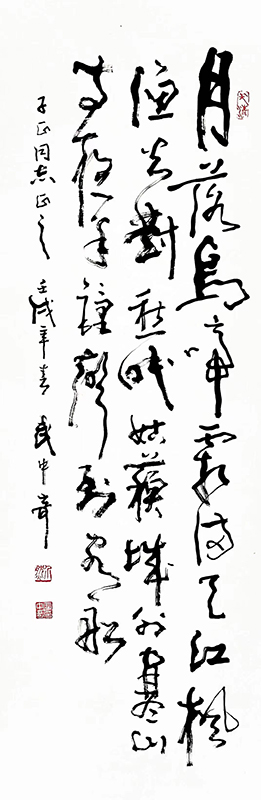 月落烏啼霜满天江楓
漁火對愁眠姑蘇城外寒山
寺夜半鐘聲到客船
子正同志正之 壬戌年春 武中奇